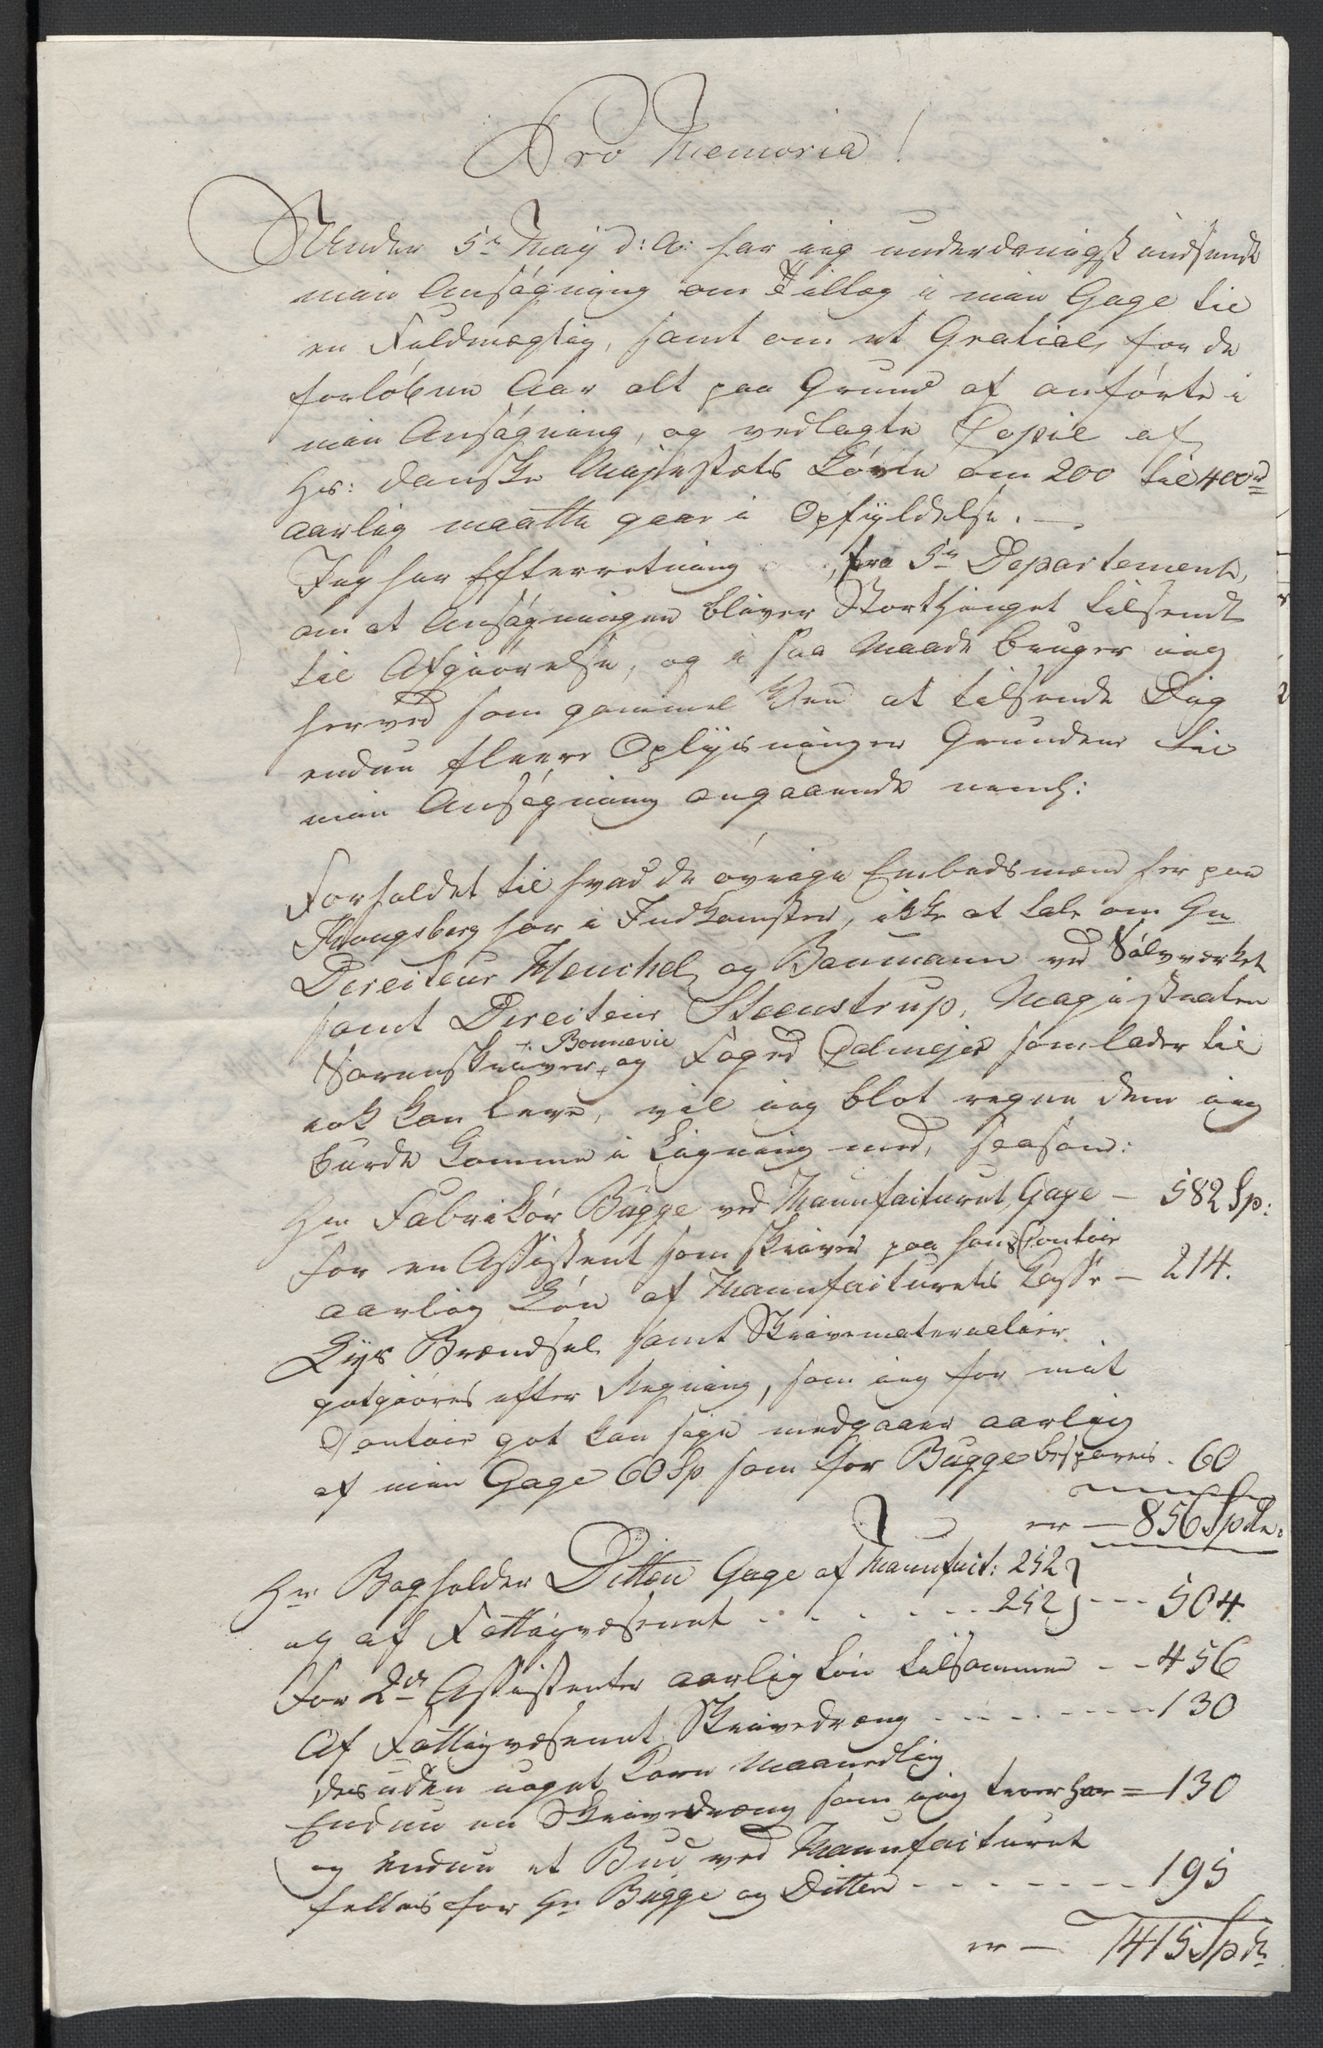 Pro Memoria!
Under 5te Maij d: A: har jeg underdanigst indsendt
min Ansøgning om Tillæg i min Gage til
en Fuldmægtig, samt om et Gratial for de
forløbne Aar alt paa Grund af anførte i
min Ansøgning, og vedlagte Copie af
Hs: danske Majestæts Løvte om 200 til 400rd
aarlig maatte gaae i Opfyldelse. —
Jeg har Efterretning fra 5te Departement,
om at Ansøgningen bliver Storthinget tilsendt
til Afgiørelse, og i saa Maade bruger jeg
herved som gammel Ven at tilsende Dig
endnu fleere Oplysninger Grundene til
min Ansøgning angaaende neml:
Forholdet til hvad de øvrige Embedsmænd her paa
Kongsberg har i Indkomster, ikke at tale om Hr
Direiteur Henchel og Baumann ved Sølvværket
samt Direiteur Steenstrup, Magistraten
Sorenskriver + Bonnevie og Foged Colmejer som lader til
nok kan leve, vil jeg blot regne dem jeg
burde komme i Ligning med, saasom:
Hr Fabrikør Bugge ved Manufacturet, Gage — 582 Sp:
For en Assistent som skriver paa hans Contoir
aarlig Løn af Manufacturets Casse — 214.
Lys Brændsel samt Skrivematerialier
gotgiøres efter Regning, som jeg for mit
Contoir got kan sige medgaaer aarlig
af min Gage 60 Sp som for Bugge bespares . 60
er — 856 Spdr.
Hr Bogholder Ditten Gage af Manufact: 252}
og af Fattigvæsenet . . . . . . . 252} --- 504
For 2de Assistenter aarlig Løn tilsammen - - 456
Af Fattigvæsenet Skrivedræng - - - - - - - 130
desuden noget Korn Maanedlig
Endnu en Skrivedræng som jeg troer har = 130
og endnu et Bud ved Manufacturet
fælles for Hr Bugge og Ditten - - - - - - - 195
er — 1415 Spdr